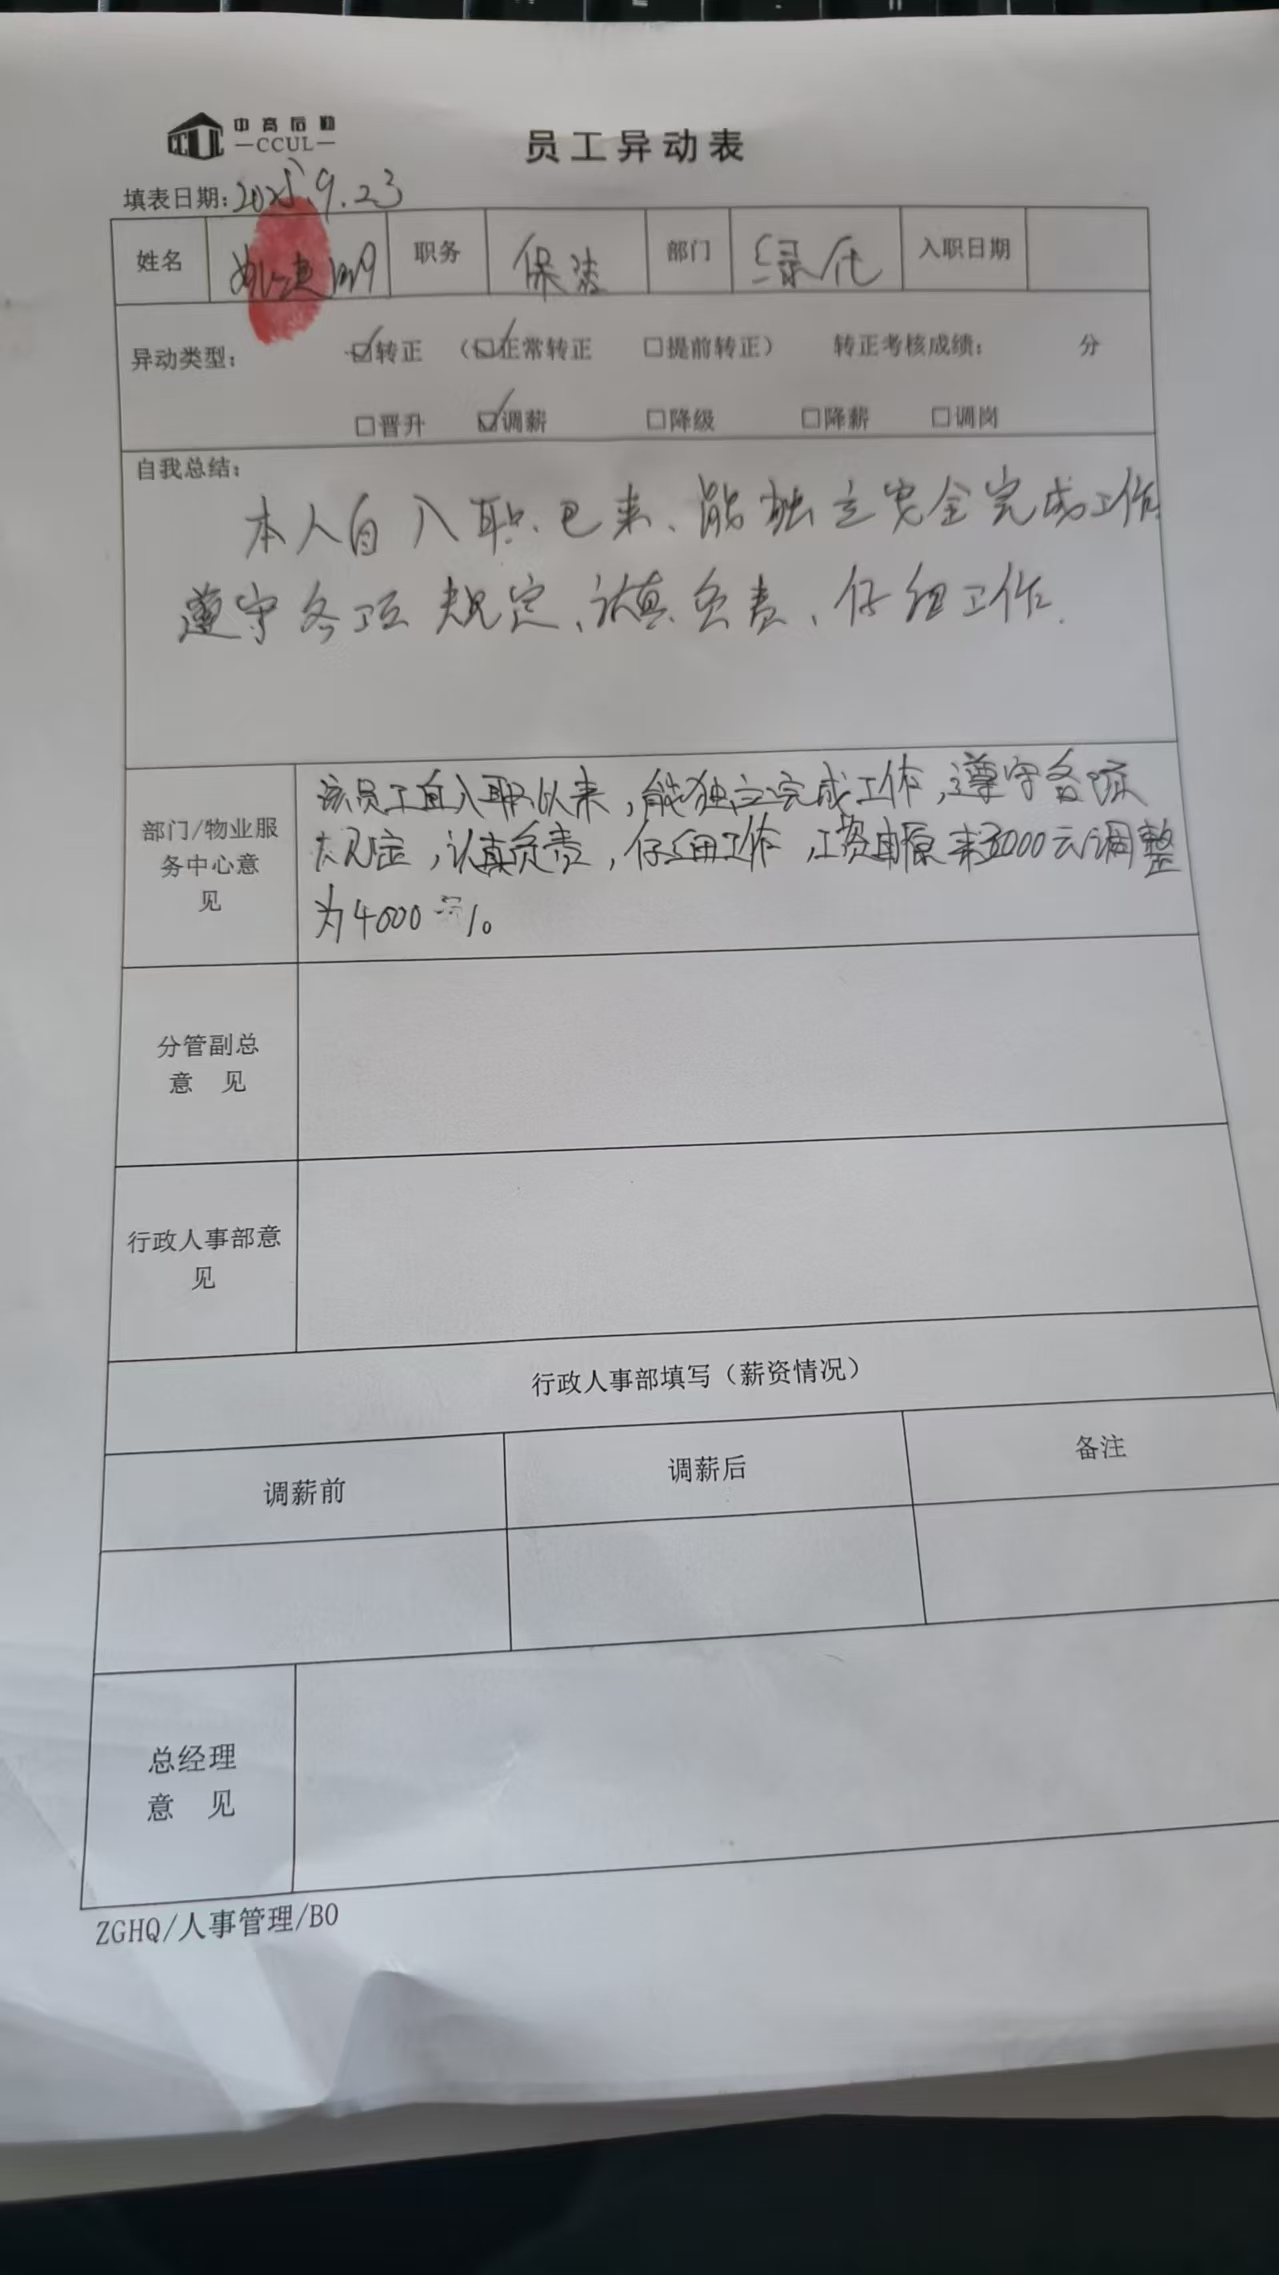 中高后勤
CCUL
员工异动表
填表日期：2025.9.23
姓名 职务 保洁 部门 绿化 入职日期
异动类型： 转正 （ 正常转正 提前转正） 转正考核成绩： 分
晋升 调薪 降级 降薪 调岗
自我总结：
本人自入职已来、能独立完全完成工作
遵守各项规定、认真负责、仔细工作.
部门/物业服务中心意见
该员工自入职以来，能独立完成工作，遵守各项
规定，认真负责，仔细工作，工资由原来3000元调整
为4000元。
分管副总
意 见
行政人事部意
见
行政人事部填写（薪资情况）
调薪前 调薪后 备注
总经理
意 见
ZGHQ/人事管理/B0